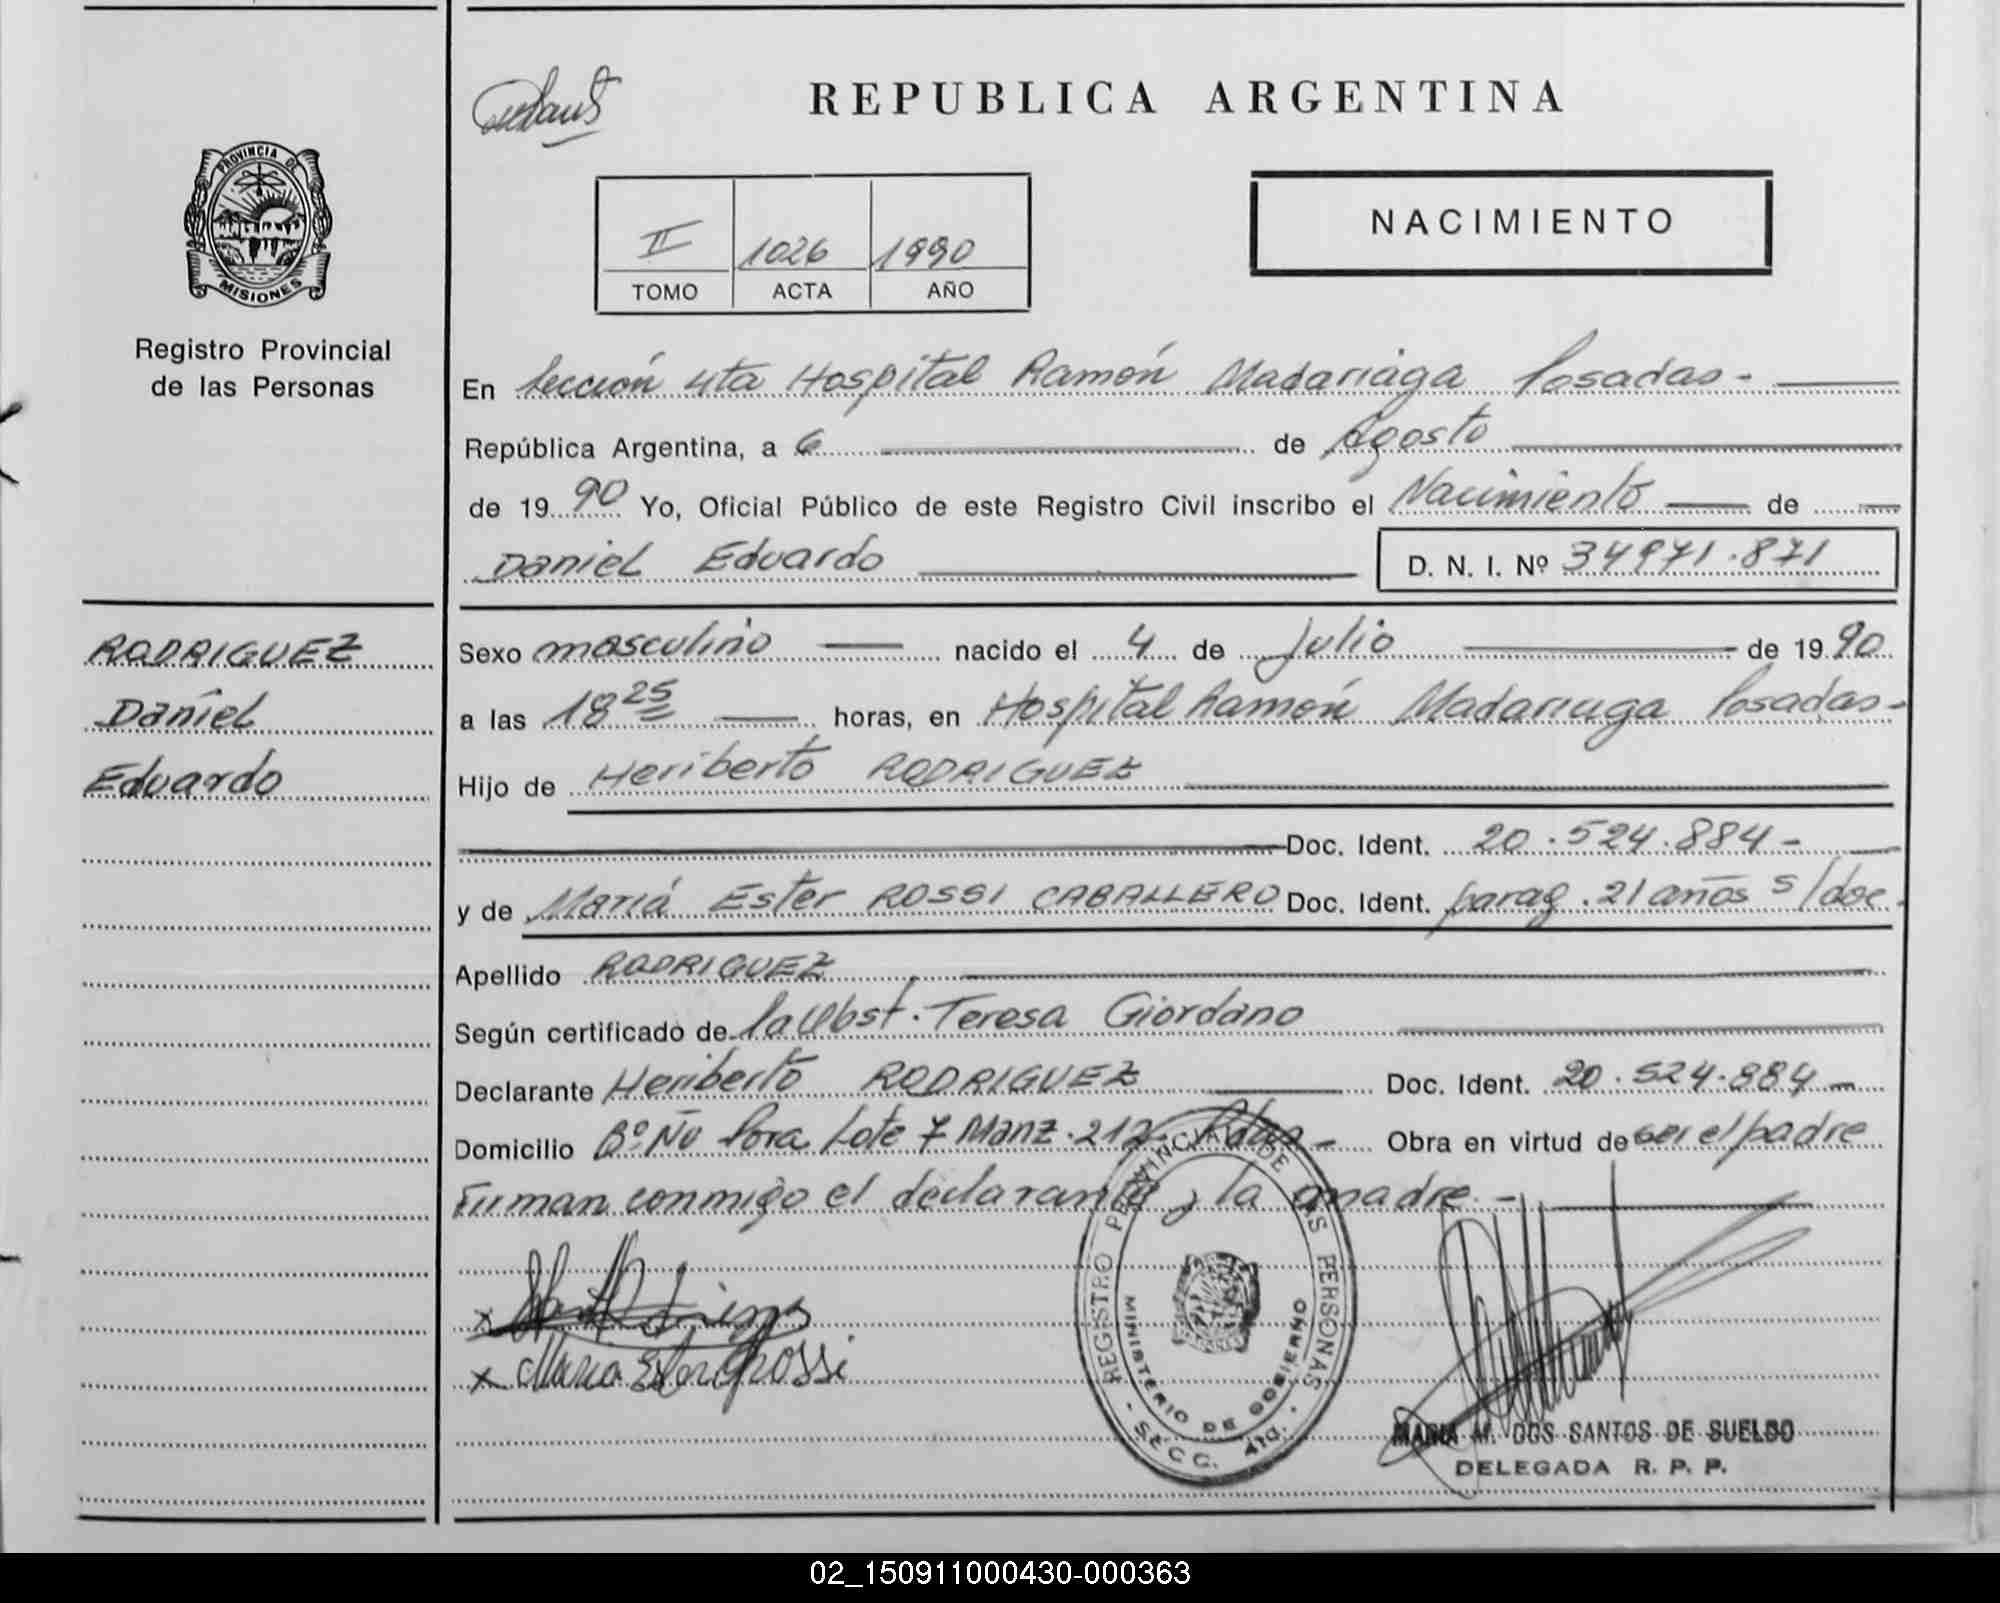 REPUBLICA ARGENTINA
PROVINCIA DE
MISIONES
Registro Provincial
de las Personas
II 1026 1990
TOMO ACTA AÑO
NACIMIENTO
En Sección 4ta Hospital Ramón Madariaga Posadas-
República Argentina, a 6 de Agosto
de 1990 Yo, Oficial Público de este Registro Civil inscribo el Nacimiento de
Daniel Eduardo D. N. I. Nº 34971.871
RODRIGUEZ
Daniel
Eduardo
Sexo masculino nacido el 4 de Julio de 1990
a las 18 25 horas, en Hospital Ramón Madariaga Posadas-
Hijo de Heriberto RODRIGUEZ
Doc. Ident. 20.524.884-
y de María Ester ROSSI CABALLERO Doc. Ident. parag. 21 años s/doc.
Apellido RODRIGUEZ
Según certificado de la Obst. Teresa Giordano
Declarante Heriberto RODRIGUEZ Doc. Ident. 20.524.884-
Domicilio Bº Ñu Pora Lote 7 Manz. 212- Pdas- Obra en virtud de ser el padre
Firman conmigo el declarante y la madre.-
x
x Maria Ester Rossi
REGISTRO PROVINCIAL DE LAS PERSONAS
MINISTERIO DE GOBIERNO
- SECC. 4ta. -
MARIA M. DOS SANTOS DE SUELDO
DELEGADA R. P. P.
02_150911000430-000363